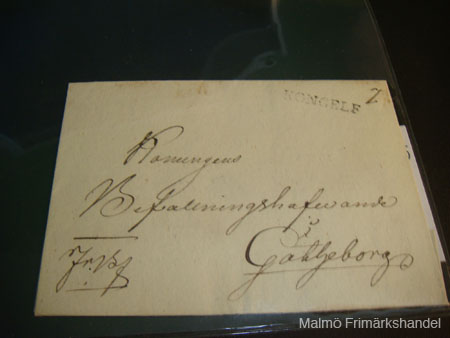 KONGELF 7
Konungens
Befallningshafwande
i
Götheborg
Fr. Bf
Malmö Frimärkshandel